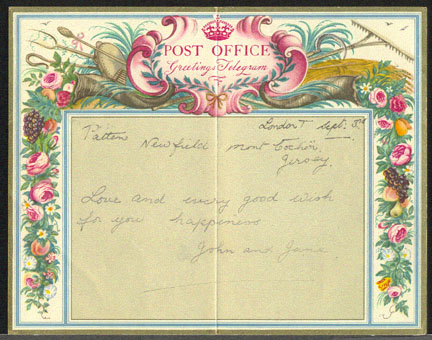 POST OFFICE
Greetings Telegram
London T Sept: 5th
Patten Newfield Mont Cochon
Jersey.
Love and every good wish
for you happiness
John and Jane